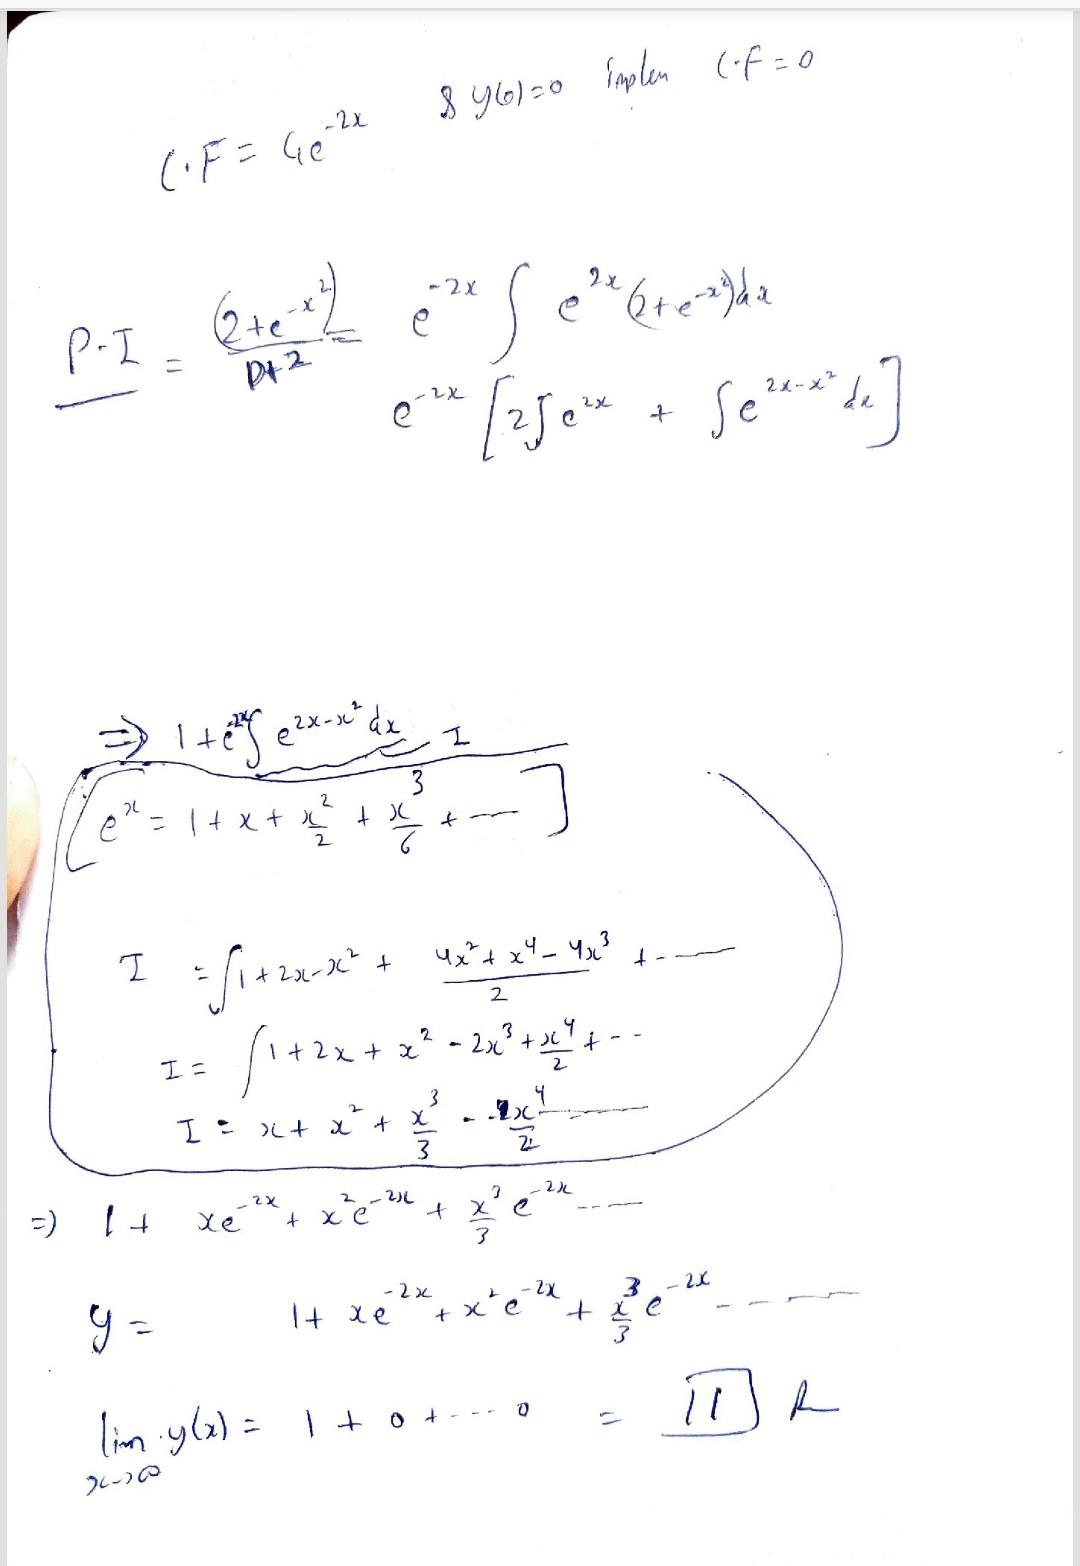 C.F = C₁e^{-2x} & y(0)=0 implen C.F = 0
P.I = (2+e^{-x²})/(D+2) = e^{-2x} ∫ e^{2x} (2+e^{-x²})dx
e^{-2x} [2∫e^{2x} + ∫e^{2x-x²} dx]
⇒ 1+e^{-2x}∫ e^{2x-x²} dx I
[e^x = 1 + x + x²/2 + x³/6 + ---]
I = ∫1+2x-x² + (4x²+x⁴-4x³)/2 + ---
I = ∫1+2x+x²-2x³+x⁴/2 + --
I = x+x²+x³/3 - x⁴/2 ---
⇒ 1 + xe^{-2x} + x²e^{-2x} + x³/3 e^{-2x} ----
y = 1+ xe^{-2x} + x²e^{-2x} + x³/3 e^{-2x} ----
lim x→∞ y(x) = 1 + 0 + --- 0 =